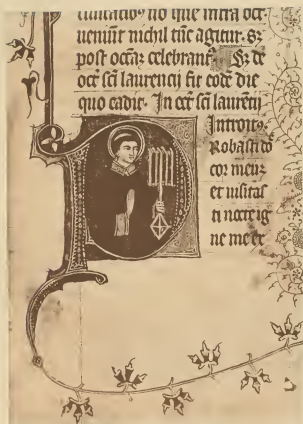 ueniūt nichil tūc agitur. Sꝫ
post octaꝫ celebrant᷑. Sꝫ de
oct̄ sc̄i laurencij fit eodē die
quo cadit. In oct̄ sc̄i laurētij
Introitꝰ.
Probasti dō
cor meuꝫ
et uisitas
ti nocte ig
ne me ex